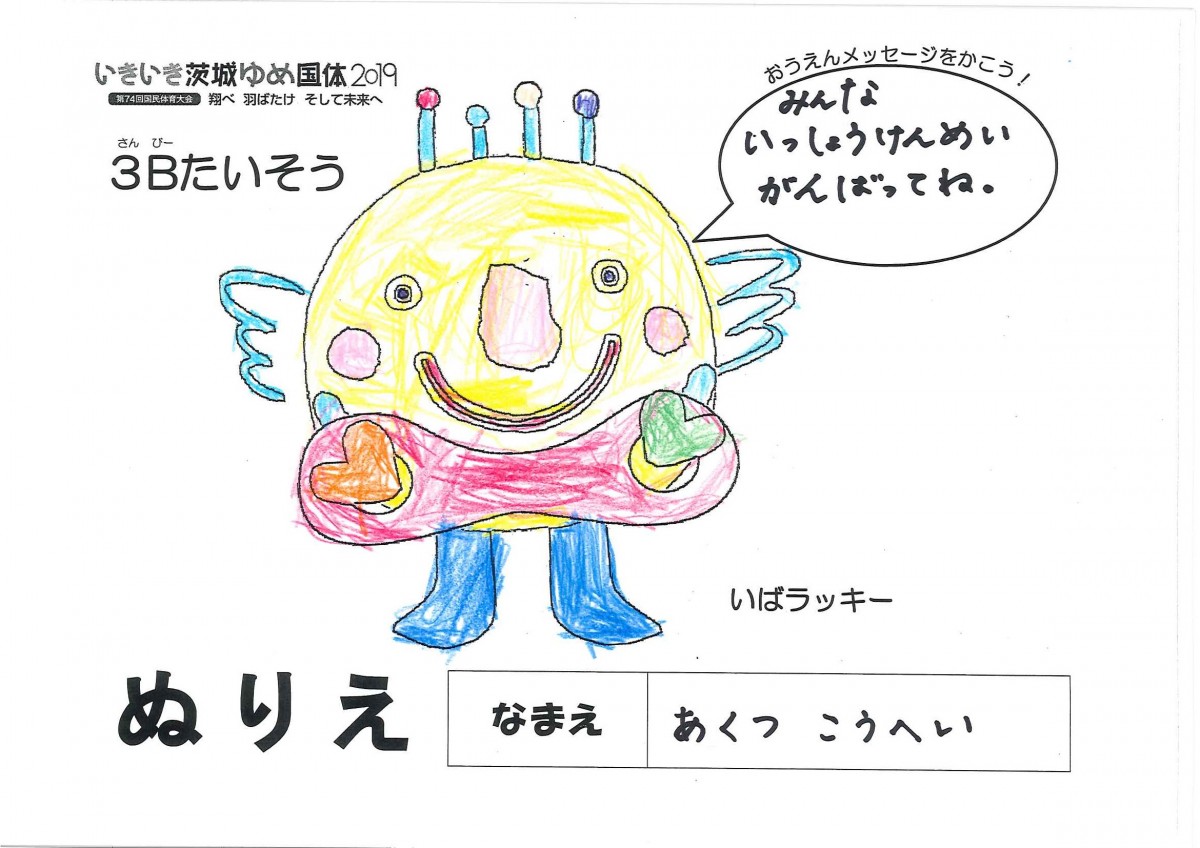 いきいき茨城ゆめ国体2019
第74回国民体育大会 翔べ 羽ばたけ そして未来へ
さん びー
3Bたいそう
おうえんメッセージをかこう!
みんな
いっしょうけんめい
がんばってね。
いばラッキー
ぬりえ
なまえ
あくつ こうへい